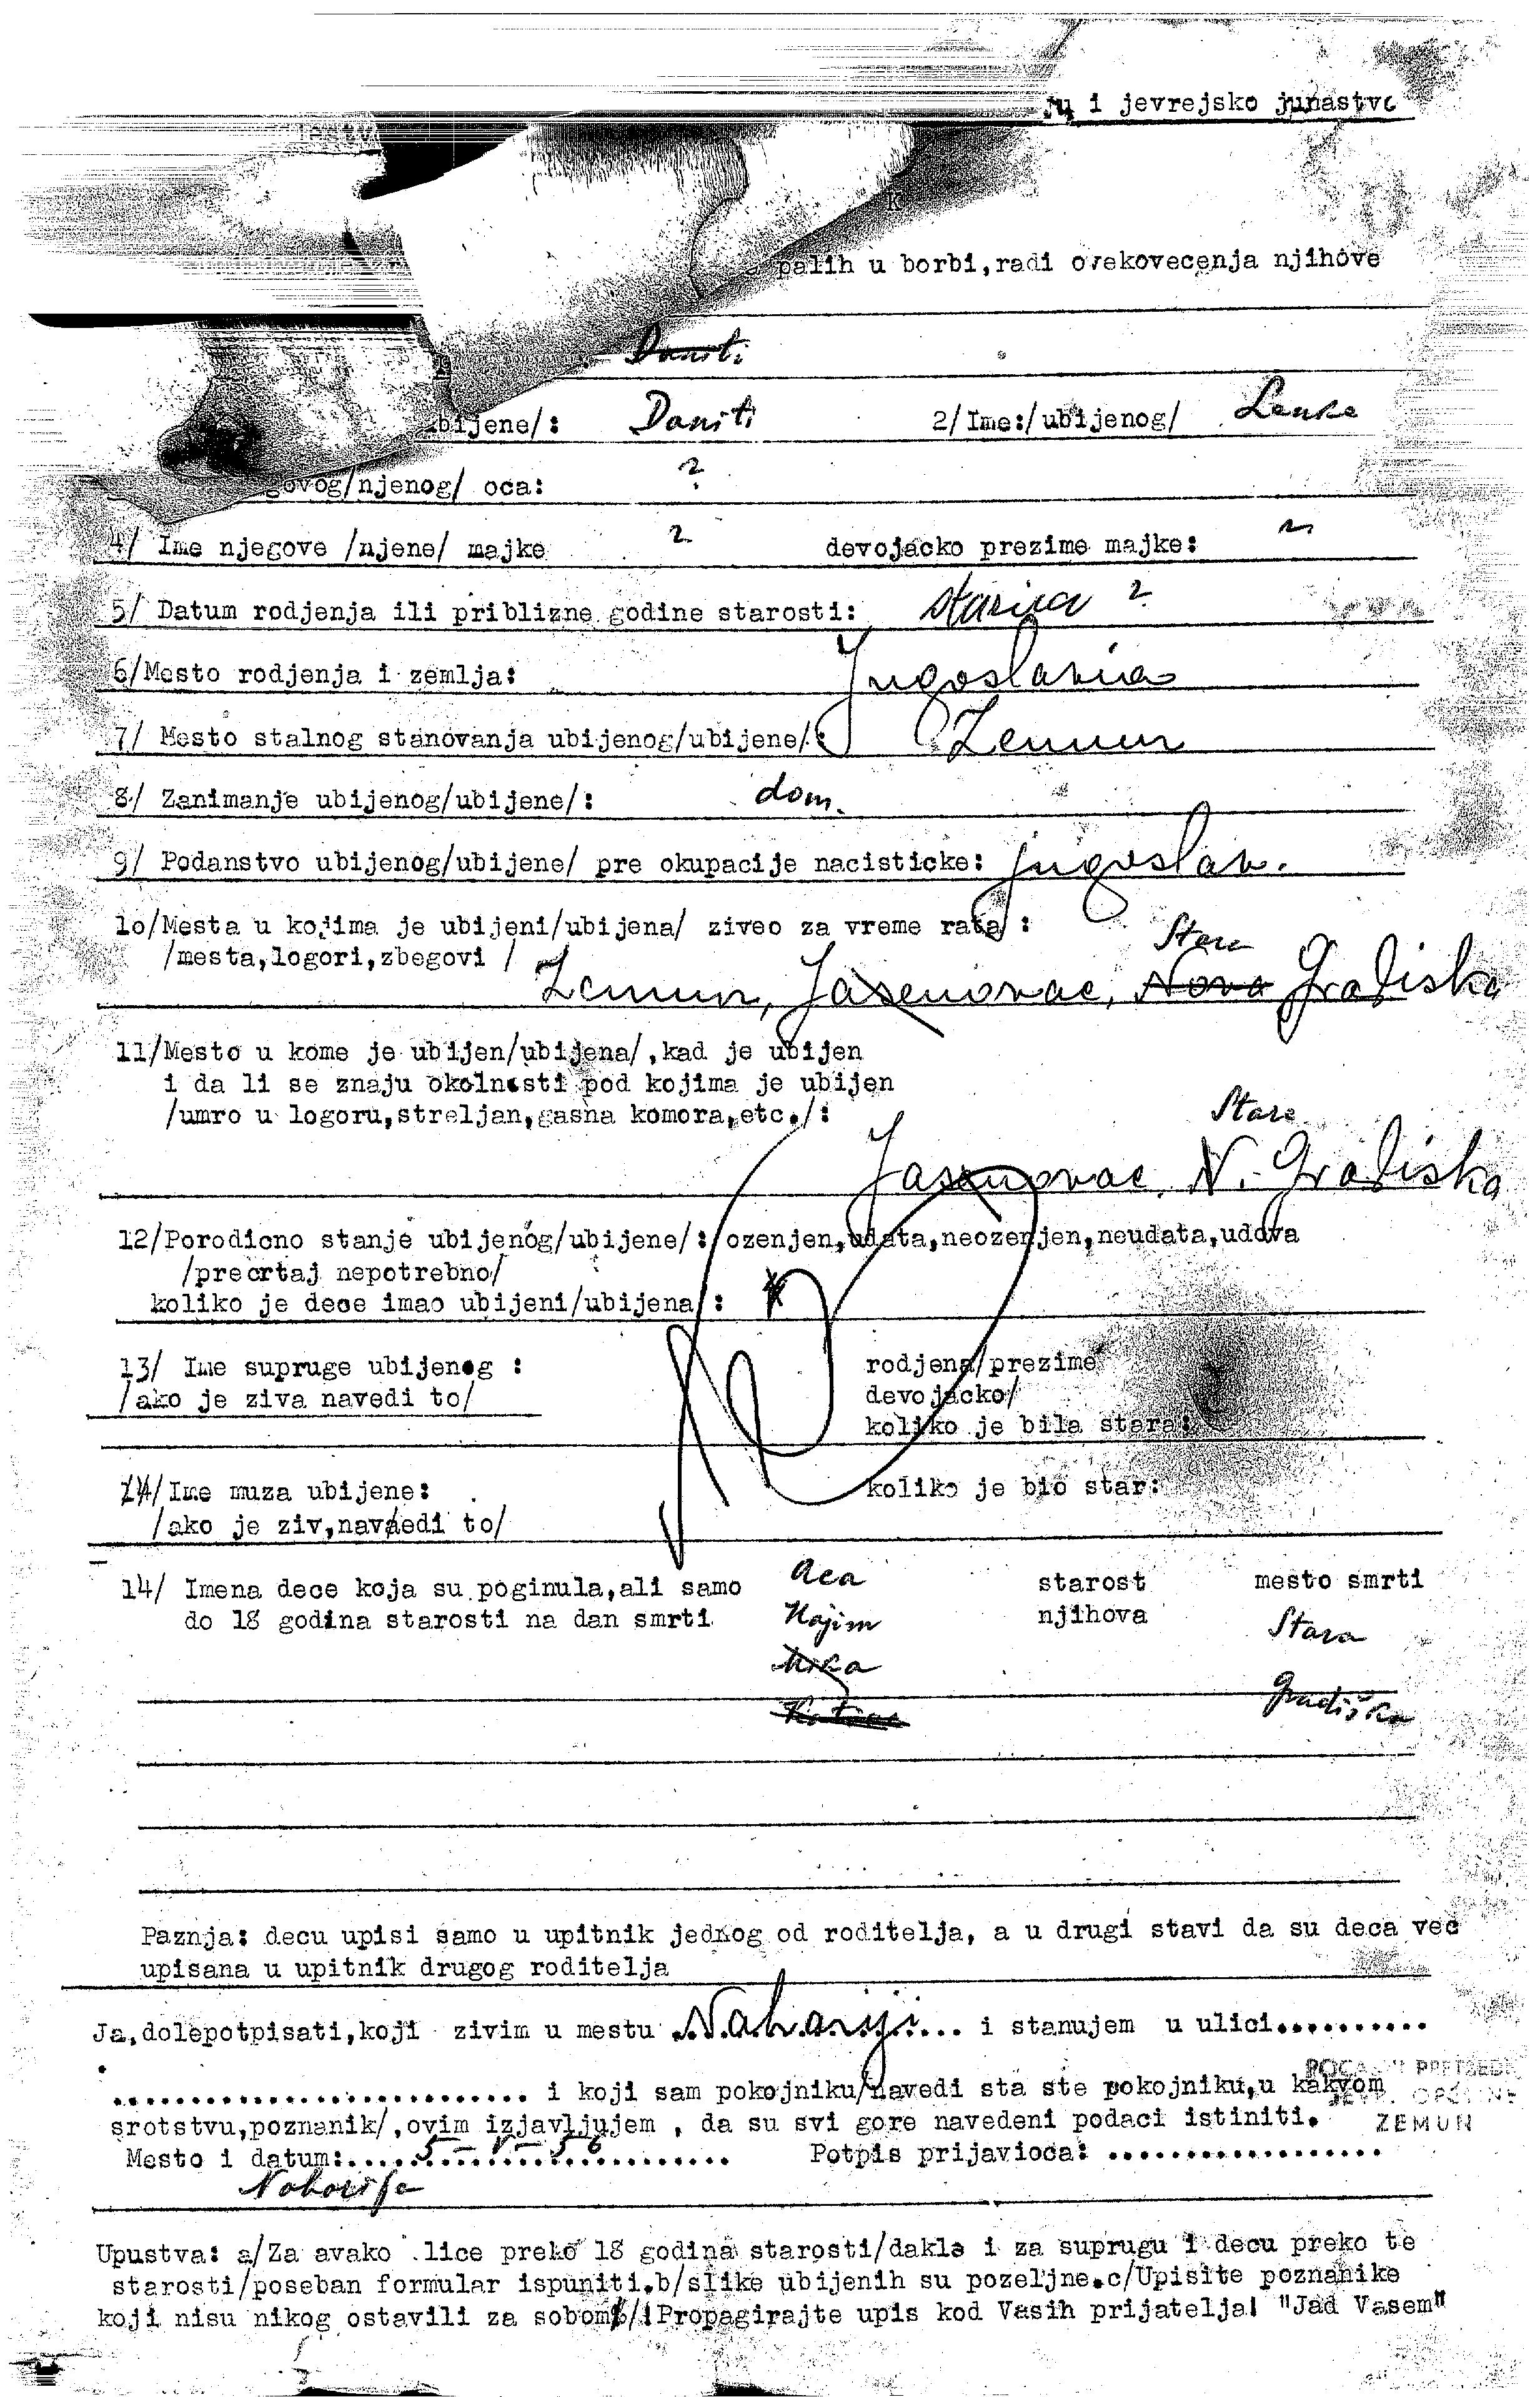 ju i jevrejsko junastvo
palih u borbi,radi ovekovecenja njihove
Daniti
ubijene/: Daniti 2/Ime:/ubijenog/ Lenke
govog/njenog/ oca: ?
4/ Ime njegove /njene/ majke ? devojacko prezime majke:
5/ Datum rodjenja ili priblizne godine starosti: starija ?
6/Mesto rodjenja i zemlja: Jugoslavia
7/ Mesto stalnog stanovanja ubijenog/ubijene/: Zemun
8/ Zanimanje ubijenog/ubijene/: dom.
9/ Podanstvo ubijenog/ubijene/ pre okupacije nacisticke: jugoslav.
Stara
1o/Mesta u kojima je ubijeni/ubijena/ ziveo za vreme rata/ :
/mesta,logori,zbegovi / Zemun, Jasenovac, Nova Gradiska
11/Mesto u kome je ubijen/ubijena/,kad je ubijen
i da li se znaju okolnosti pod kojima je ubijen
/umro u logoru,streljan,gasna komora,etc./: Stara
Jasenovac, N. Gradiska
12/Porodicno stanje ubijenog/ubijene/: ozenjen,udata,neozenjen,neudata,udova
/precrtaj nepotrebno/
koliko je dece imao ubijeni/ubijena/:
13/ Ime supruge ubijenog : rodjena/prezime
/ako je ziva navedi to/ devojacko/
koliko je bila stara:
14/Ime muza ubijene: koliko je bio star:
/ako je ziv,navedi to/
14/ Imena dece koja su poginula,ali samo Aca starost mesto smrti
do 18 godina starosti na dan smrti Hajim njihova Stara
Gradiška
Paznja: decu upisi samo u upitnik jednog od roditelja, a u drugi stavi da su deca vec
upisana u upitnik drugog roditelja
Ja,dolepotpisati,koji zivim u mestu Nahariji i stanujem u ulici..........
.......................... i koji sam pokojniku/navedi sta ste pokojniku,u kakvom
srotstvu,poznanik/,ovim izjavljujem , da su svi gore navedeni podaci istiniti.
ZEMUN
Mesto i datum: 5-V-56 Potpis prijavioca: .................
Naharija
Upustva: a/Za avako lice preko 18 godina starosti/dakle i za suprugu i decu preko te
starosti/poseban formular ispuniti.b/slike ubijenih su pozeljne.c/Upisite poznanike
koji nisu nikog ostavili za sobom/!Propagirajte upis kod Vasih prijatelja! "Jad Vasem"